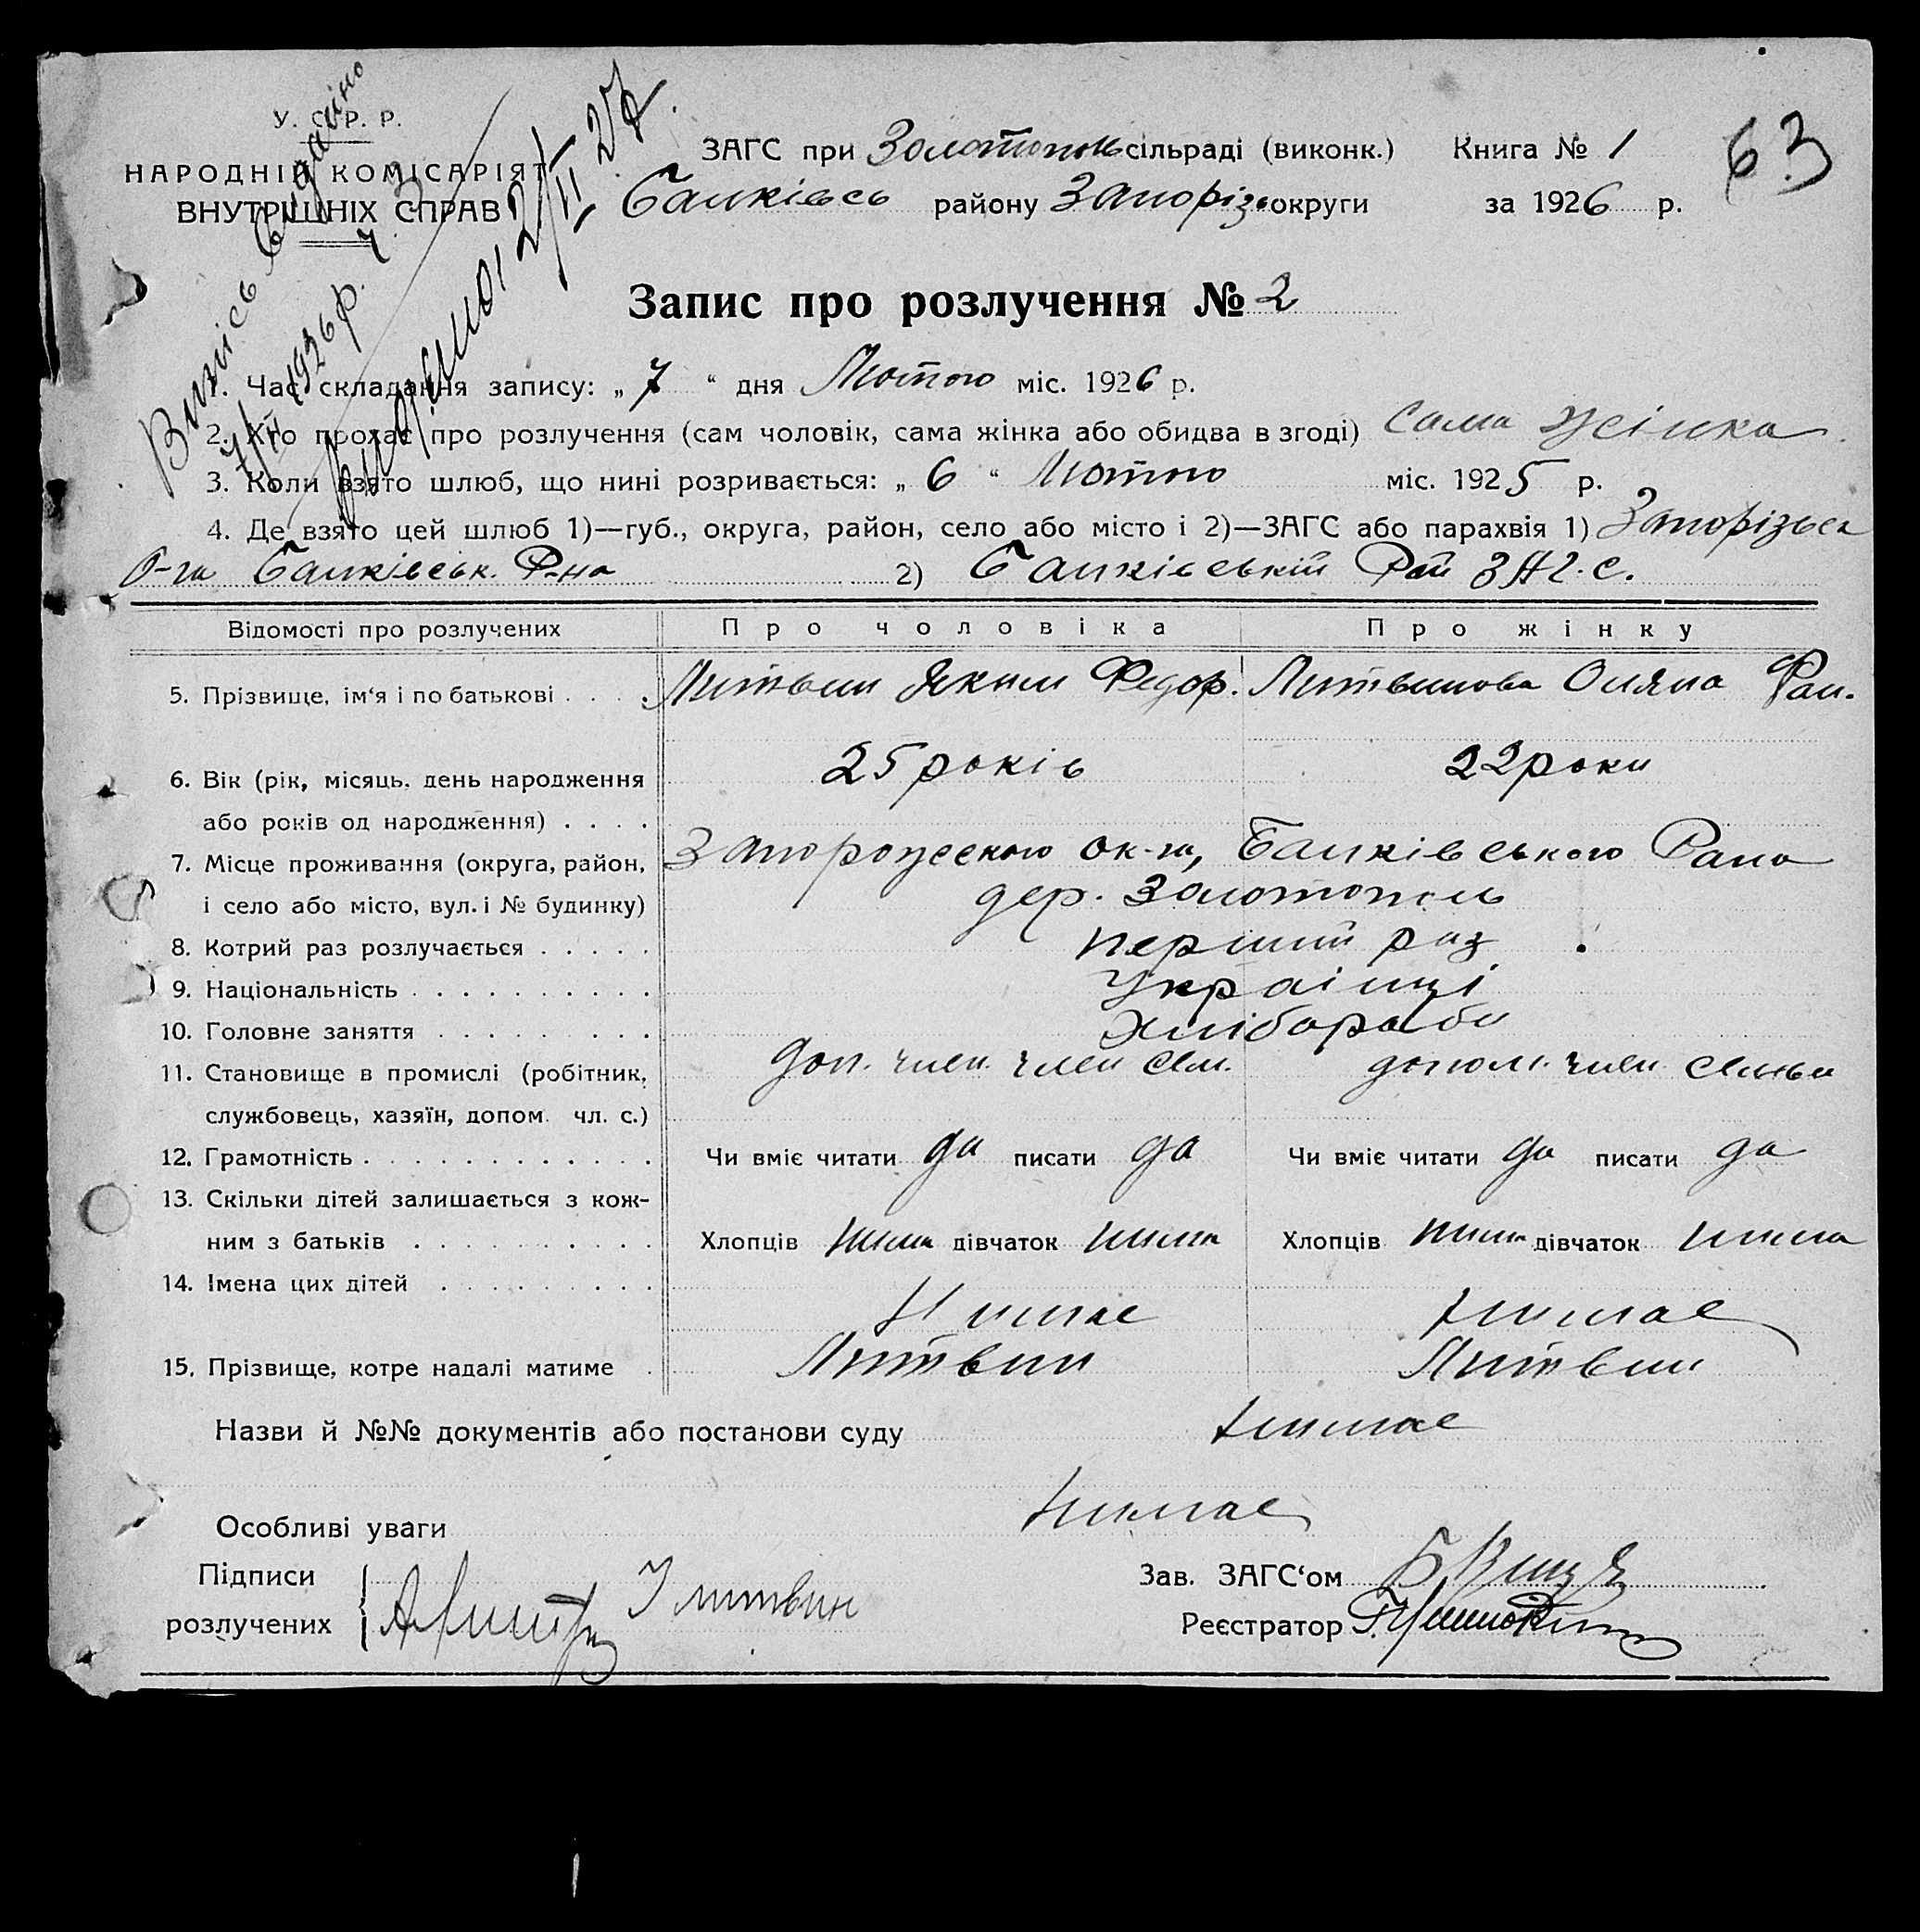 У. С. Р. Р.
НАРОДНІЙ КОМІСАРІЯТ
ВНУТРІШНІХ СПРАВ
ЗАГС при Золотополь сільраді (виконк.) Книга № 1
63
Балківсь району Запорізь округи за 1926 р.
Запис про розлучення № 2
Випісь
1. Час складання запису: „ 7 “ дня Лютого міс. 1926 р.
2. Хто прохає про розлучення (сам чоловік, сама жінка або обидва в згоді) Сама жінка
3. Коли взято шлюб, що нині розривається: „ 6 “ Лютого міс. 1925 р.
4. Де взято цей шлюб 1)—губ., округа, район, село або місто і 2)—ЗАГС або парахвія 1) Запорізьск
О-га Балківськ. Р-на 2) Балківській Рай ЗАГ.С.
Відомості про розлучених Про чоловіка Про жінку
5. Прізвище, ім‘я і по батькові . . . . Литвин Яким Федор. Литвинова Оляна
6. Вік (рік, місяць, день народження 25 років 22 роки
або років од народження) . . . .
7. Місце проживання (округа, район, Запорожского ок-ги, Балківського Рана
і село або місто, вул. і № будинку) дер. Золотополь
8. Котрий раз розлучається . . . . . перший раз
9. Національність . . . . . . . . . . Українці
10. Головне заняття . . . . . . . . . Хлібороби
11. Становище в промислі (робітник, доп. член. член сем. допом. член семьи
службовець, хазяїн, допом. чл. с.)
12. Грамотність . . . . . . . . . . . . Чи вміє читати да писати да Чи вміє читати да писати да
13. Скільки дітей залишається з кож-
ним з батьків . . . . . . . . . . Хлопців нима дівчаток нима Хлопців нима дівчаток нима
14. Імена цих дітей . . . . . . . . .
Нимае нимае
15. Прізвище, котре надалі матиме . Литвин Литвин
Назви й №№ документів або постанови суду нимае
Особливі уваги нимае
Підписи Зав. ЗАГС‘ом
розлучених литвин Реєстратор